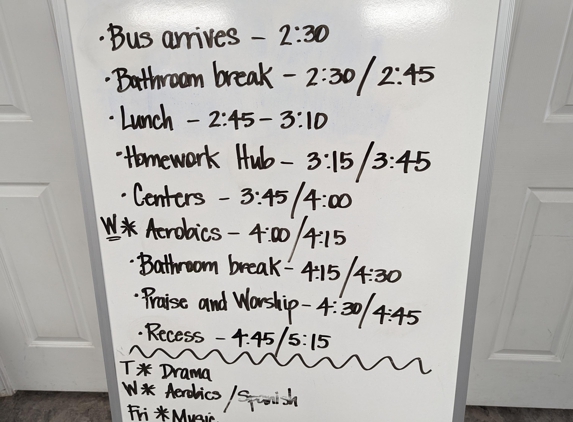 ·Bus arrives - 2:30
·Bathroom break - 2:30/2:45
·Lunch - 2:45-3:10
·Homework Hub - 3:15/3:45
·Centers - 3:45/4:00
W* Aerobics - 4:00/4:15
·Bathroom break - 4:15/4:30
·Praise and Worship - 4:30/4:45
·Recess - 4:45/5:15
T* Drama
W* Aerobics/Spanish
Fri *Music